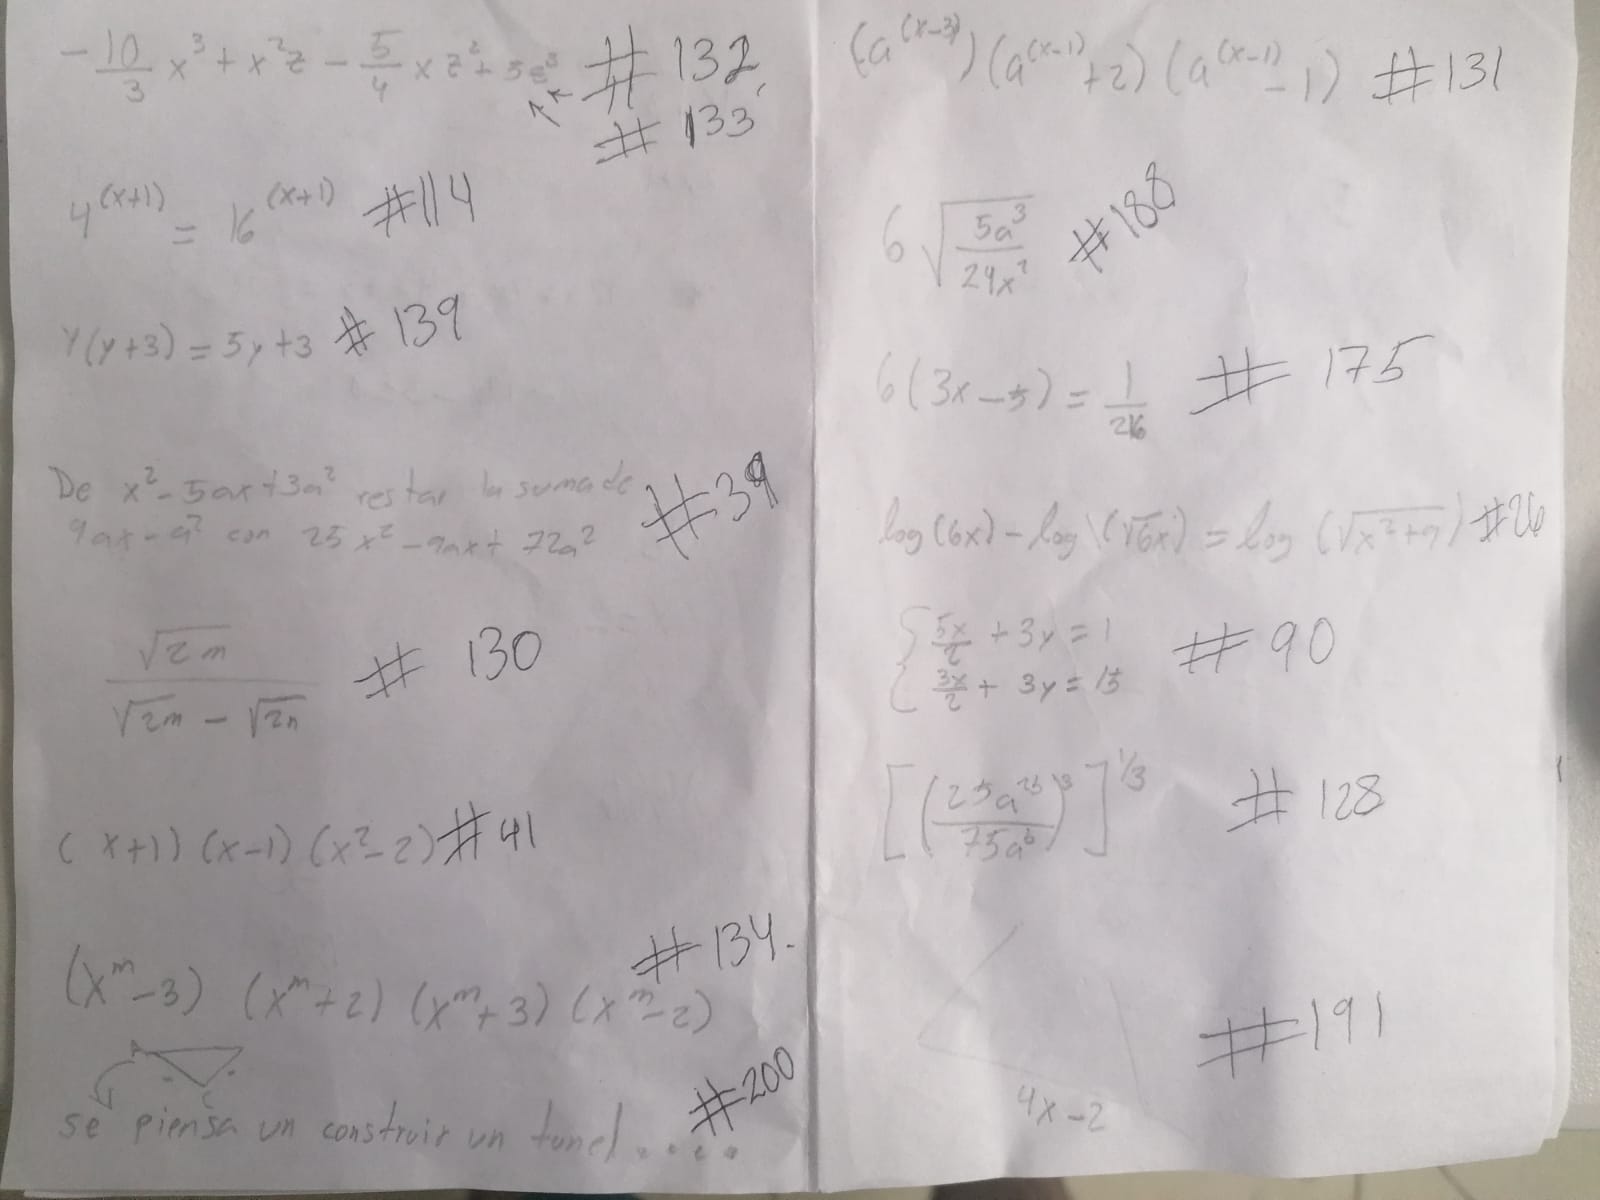 -10/3 x³ + x²z - 5/4 xz² + 5z³ # 132,
# 133
4^(x+1) = 16^(x+1) #114
Y(y+3) = 5y+3 # 139
De x² - 5ax + 3a² restar la suma de
9ax - a² con 25x² - 9ax + 72a² #39
√2m / √2m - √2n # 130
(x+1)) (x-1) (x²-2) #41
#134.
(x^m - 3) (x^m + 2) (x^m + 3) (x^m - 2)
#200
se piensa un construir un tunel....
(a^(x-3)) (a^(x-1) + 2) (a^(x-1) - 1) #131
6 √5a³/24x² #188
6(3x-5) = 1/216 # 175
log(6x) - log(√6x) = log(√x²+9) #26
{ 5x/2 + 3y = 1 # 90
3x/2 + 3y = 15
[(25a^25/75a^6)³]^1/3 # 128
#191
4x-2